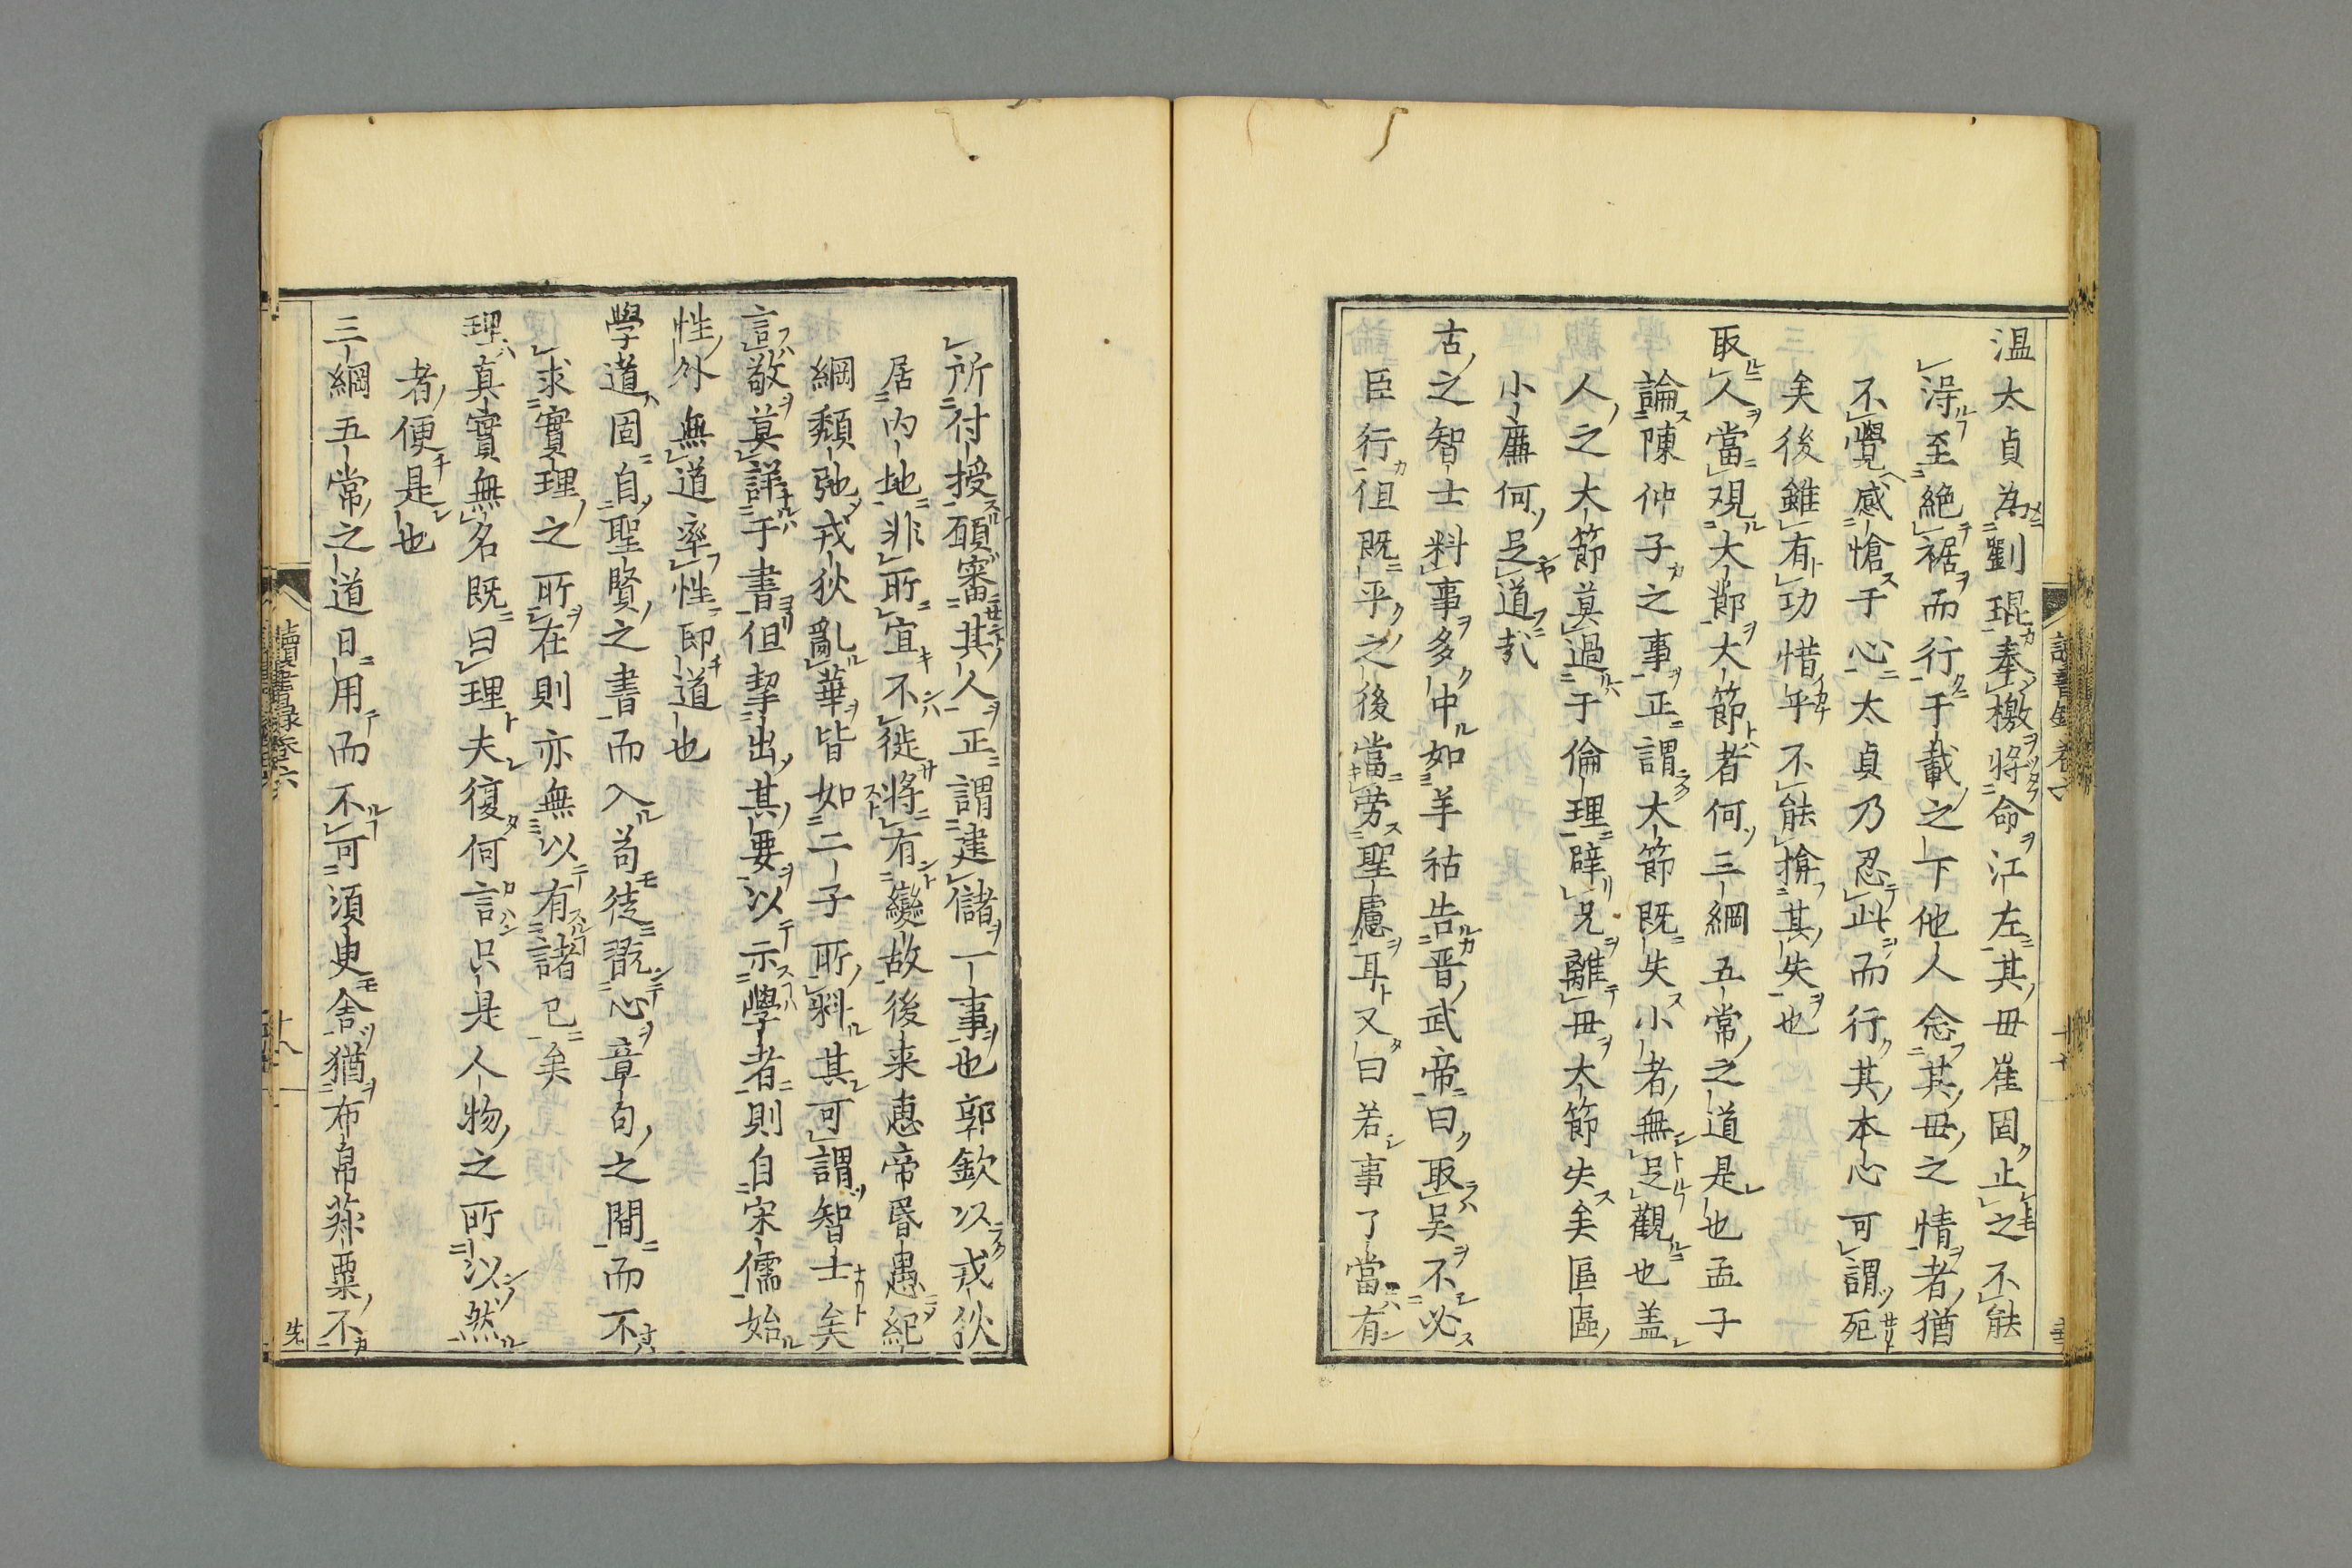 溫太貞為劉琨奉檄將命江左其毋崔固止之不能
淂至絶裾而行于載之下他人念其毋之情者猶
不覺感愴于心太貞乃忍此而行其本心可謂死
矣後雖有功惜乎不能揜其失也
取人當观大節大節者何三綱五常之道是也孟子
論陳仲子之事正謂大節既失小者無足觀也盖
人之大節莫過于倫理辟兄離毋大節失矣區區
小廉何足道㢤
古之智士料事多中如羊祜告晋武帝曰取吳不必
臣行但既平之後當劳聖慮耳又曰若事了當有
所付授願審其人正謂建儲一事也郭欽以戎狄
居内地非所宜不徙將有變故後来惠帝昏愚紀
綱頽弛戎狄亂華皆如二子所料其可謂智士矣
言敬莫詳于書但挈出其要以示學者則自宋儒始
性外無道率性即道也
學道固自聖賢之書而入苟徒翫心章句之間而不
求實理之所在則亦無以有諸已矣
理真實無名既曰理夫復何言只是人物之所以然
者便是也
三綱五常之道日用而不可須臾舍猶布帛菽粟不
讀書録卷六
十八